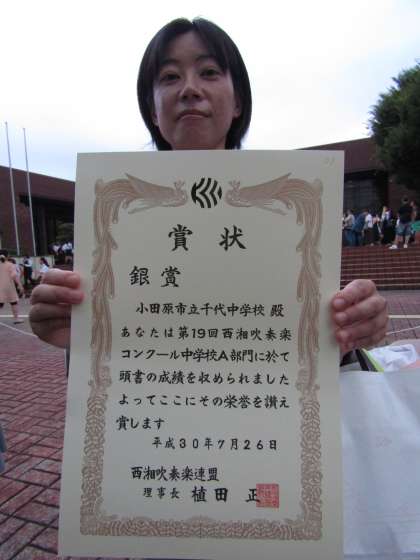 賞状
銀賞
小田原市立千代中学校 殿
あなたは第19回西湘吹奏楽
コンクール中学校A部門に於て
頭書の成績を収められました
よってここにその栄誉を讃え
賞します
平成30年7月26日
西湘吹奏楽連盟
理事長 植田 正